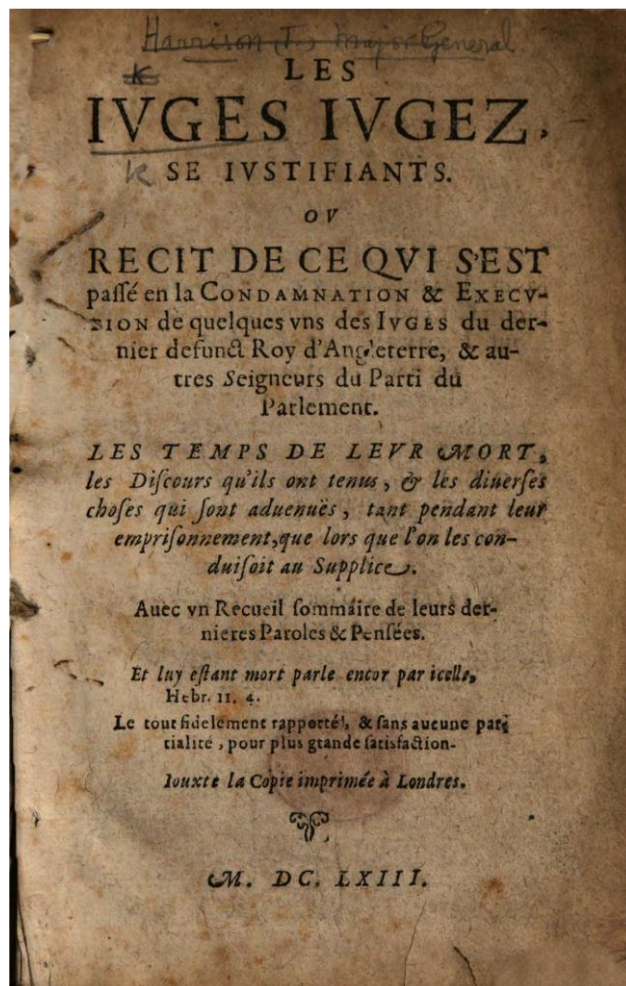 Harrison T. Major General
LES
IVGES IVGEZ,
SE IVSTIFIANTS.
OV
RECIT DE CE QVI S'EST
passé en la CONDAMNATION & EXECV-
SION de quelques vns des IVGES du der-
nier defunct Roy d'Angleterre, & au-
tres Seigneurs du Parti du
Parlement.
LES TEMPS DE LEVR MORT,
les Discours qu'ils ont tenus, & les diuerses
choses qui sont aduenuës, tant pendant leur
emprisonnement, que lors que l'on les con-
duisoit au Supplice.
Auec vn Recueil sommaire de leurs der-
nieres Paroles & Pensées.
Et luy estant mort parle encor par icelle,
Hebr. 11. 4.
Le tout fidelement rapporté, & sans aucune par-
tialité, pour plus grande satisfaction.
Iouxte la Copie imprimée à Londres.
M. DC. LXIII.